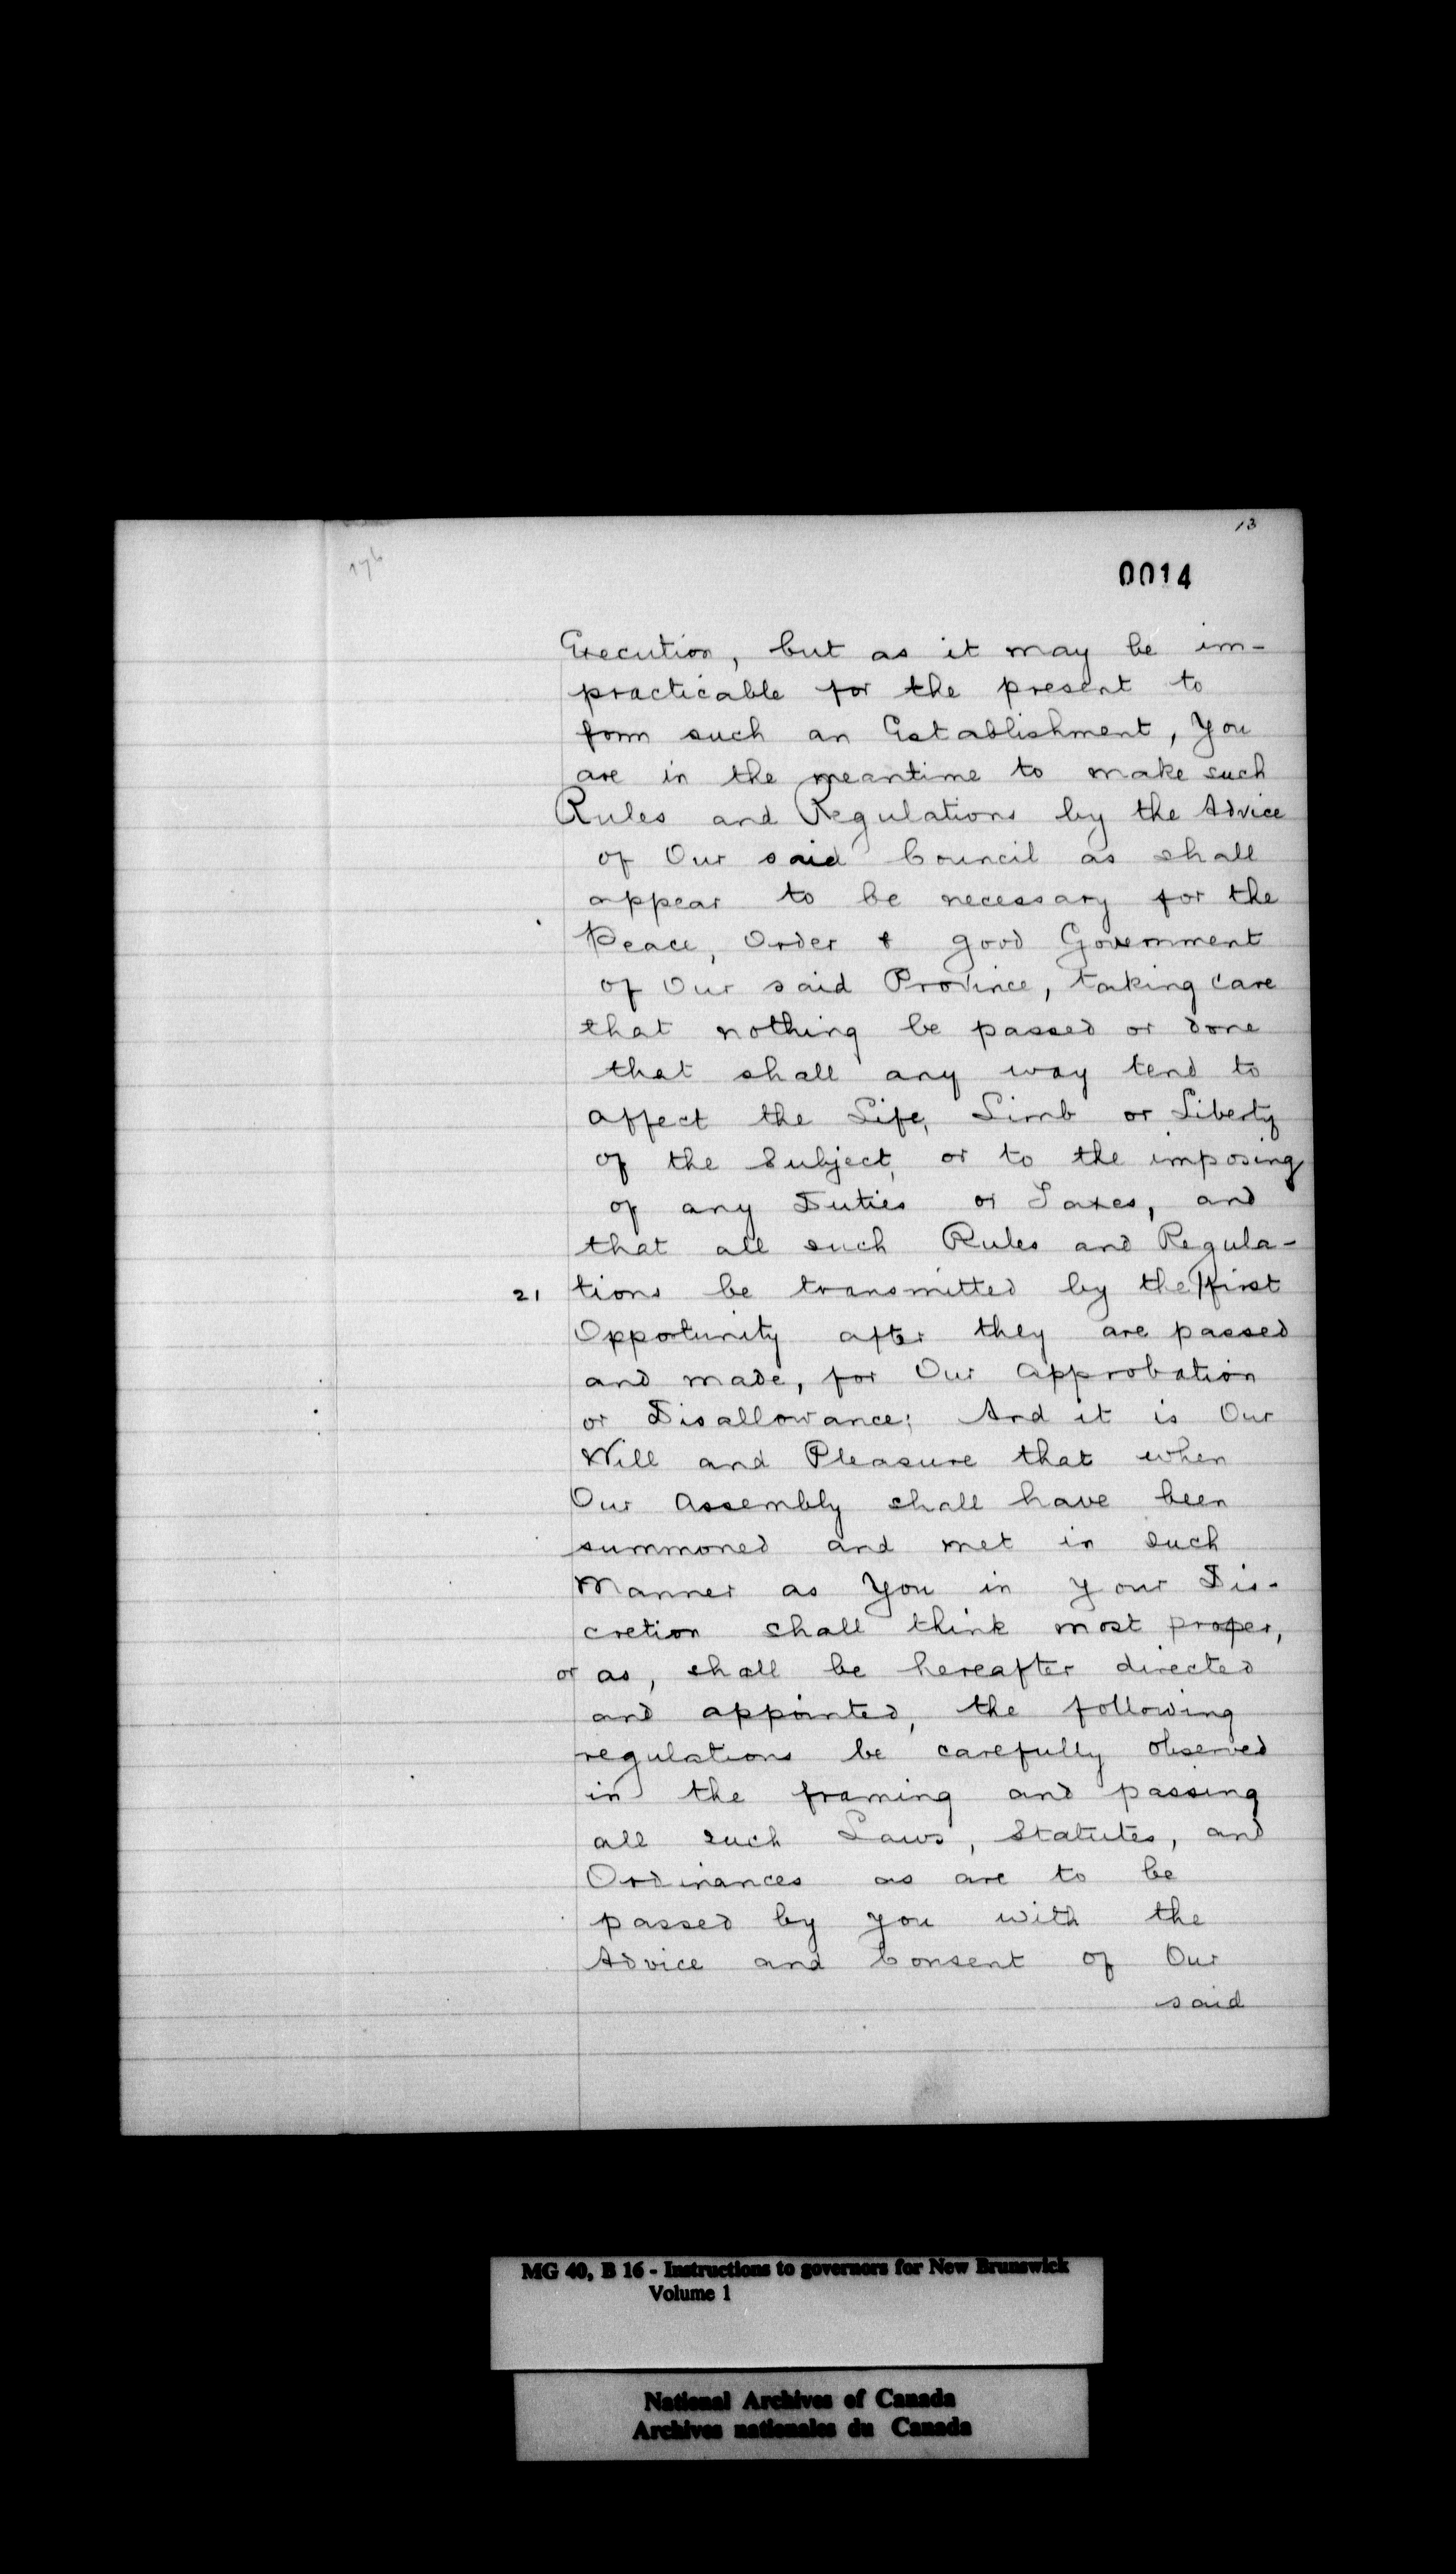 13
176
0014
Execution, but as it may be im-
practicable for the present to
form such an Establishment, you
are in the meantime to make such
Rules and Regulations by the Advice
of Our said Council as shall
appear to be necessary for the
Peace, Order & good Government
of Our said Province, taking care
that nothing be passed or done
that shall any way tend to
affect the Life, Limb or Liberty
of the Subject, or to the imposing
of any Duties or Taxes, and
that all such Rules and Regula-
21 tions be transmitted by the/first
Opportunity after they are passed
and made, for Our Approbation
or Disallowance; And it is Our
Will and Pleasure that when
Our Assembly shall have been
summoned and met in such
Manner as You in your Dis-
cretion shall think most proper,
or as, shall be hereafter directed
and appointed, the following
regulations be carefully observed
in the framing and passing
all such Laws, Statutes, and
Ordinances as are to be
passed by you with the
Advice and Consent of Our
said
MG 40, B 16 - Instructions to governors for New Brunswick
Volume 1
National Archives of Canada
Archives nationales du Canada